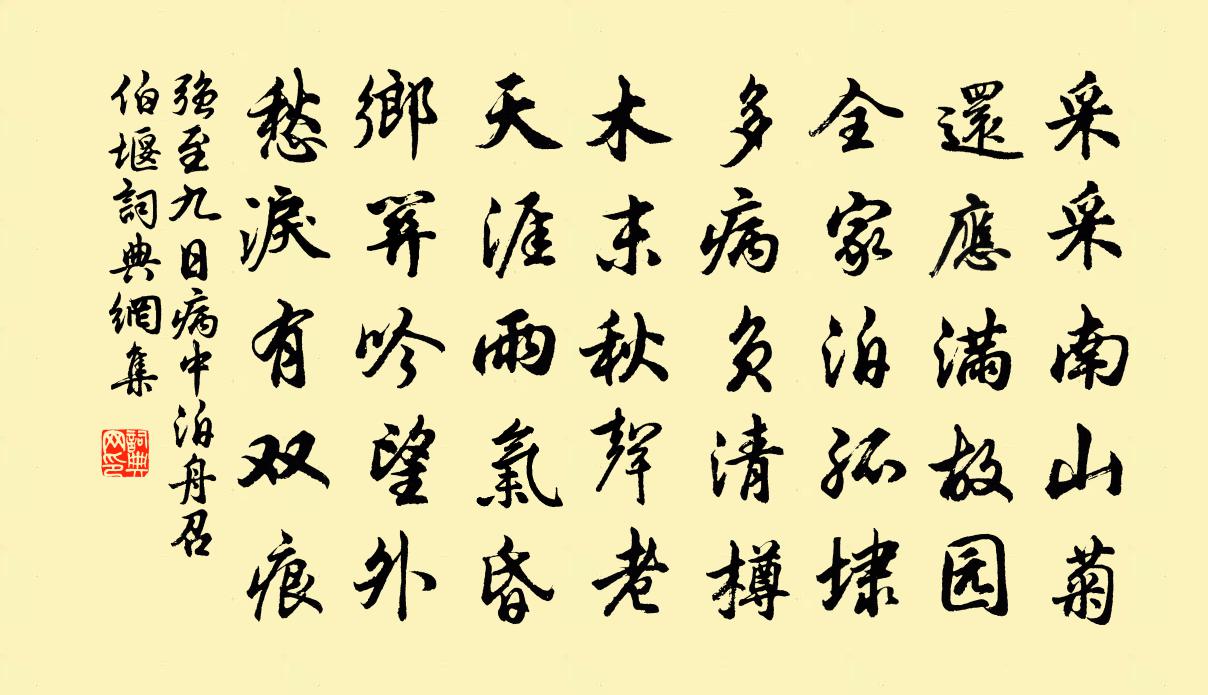 采采南山菊
還應满故园
全家泊孤埭
多病负清樽
木末秋聲老
天涯雨氣昏
鄉關吟望外
愁淚有双痕
強至九日病中泊舟召
伯堰詞典網集
詞典
网印